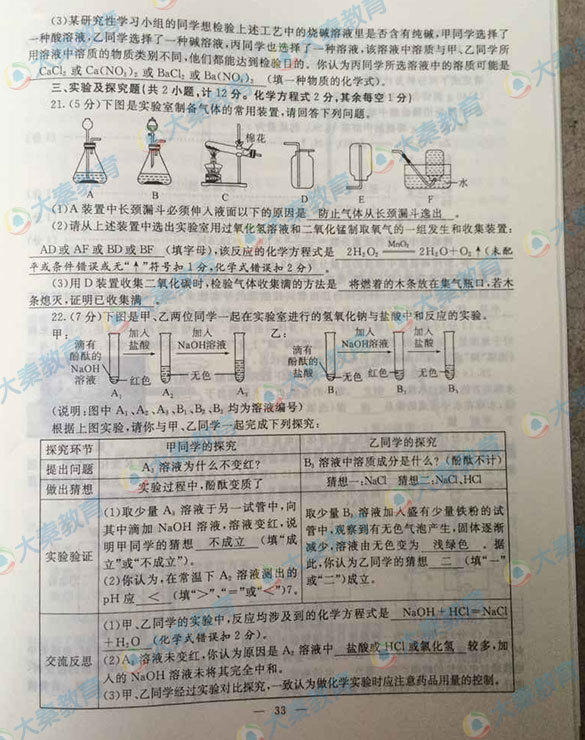 (3)某研究性学习小组的同学想检验上述工艺中的烧碱溶液里是否含有纯碱,甲同学选择了
一种酸溶液,乙同学选择了一种碱溶液,丙同学也选择了一种溶液,该溶液中溶质与甲、乙同学所
用溶液中溶质的物质类别不同,他们都能达到检验目的。你认为丙同学所选溶液中的溶质可能是
CaCl₂ 或 Ca(NO₃)₂ 或 BaCl₂ 或 Ba(NO₃)₂ (填一种物质的化学式)。
三、实验及探究题(共 2 小题,计 12 分。化学方程式 2 分,其余每空 1 分)
21.(5 分)下图是实验室制备气体的常用装置,请回答下列问题。
棉花
水
A B C D E F
(1)A 装置中长颈漏斗必须伸入液面以下的原因是 防止气体从长颈漏斗逸出 。
(2)请从上述装置中选出实验室用过氧化氢溶液和二氧化锰制取氧气的一组发生和收集装置:
AD 或 AF 或 BD 或 BF (填字母),该反应的化学方程式是 2H₂O₂ MnO₂ 2H₂O+O₂↑(未配
平或条件错误或无“↑”符号扣 1 分,化学式错误扣 2 分) 。
(3)用 D 装置收集二氧化碳时,检验气体收集满的方法是 将燃着的木条放在集气瓶口,若木
条熄灭,证明已收集满
22.(7 分)下图是甲、乙两位同学一起在实验室进行的氢氧化钠与盐酸中和反应的实验。
甲: 滴有酚酞的NaOH溶液 加入盐酸 加入NaOH溶液 红色 无色 A₁ A₂ A₃
乙: 滴有酚酞的盐酸 加入NaOH溶液 加入盐酸 无色 红色 无色 B₁ B₂ B₃
(说明:图中 A₁、A₂、A₃、B₁、B₂、B₃ 均为溶液编号)
根据上图实验,请你与甲、乙同学一起完成下列探究:
探究环节 甲同学的探究 乙同学的探究
提出问题 A₃ 溶液为什么不变红? B₃ 溶液中溶质成分是什么?(酚酞不计)
做出猜想 实验过程中,酚酞变质了 猜想一:NaCl 猜想二:NaCl、HCl
实验验证
(1)取少量 A₃ 溶液于另一试管中,向
其中滴加 NaOH 溶液,溶液变红,说
明甲同学的猜想 不成立 (填“成
立”或“不成立”)。
(2)你认为,在常温下 A₂ 溶液测出的
pH 应 < (填“>”、“=”或“<”)7。
取少量 B₃ 溶液加入盛有少量铁粉的试
管中,观察到有无色气泡产生,固体逐渐
减少,溶液由无色变为 浅绿色 。据
此,你认为乙同学的猜想 二 (填“一”
或“二”)成立。
交流反思
(1)甲、乙同学的实验中,反应均涉及到的化学方程式是 NaOH+HCl=NaCl
+H₂O (化学式错误扣 2 分)。
(2)A₃ 溶液未变红,你认为原因是 A₂ 溶液中 盐酸或 HCl 或氯化氢 较多,加
入的 NaOH 溶液未将其完全中和。
(3)甲、乙同学经过实验对比探究,一致认为做化学实验时应注意药品用量的控制。
— 33 —
大秦教育